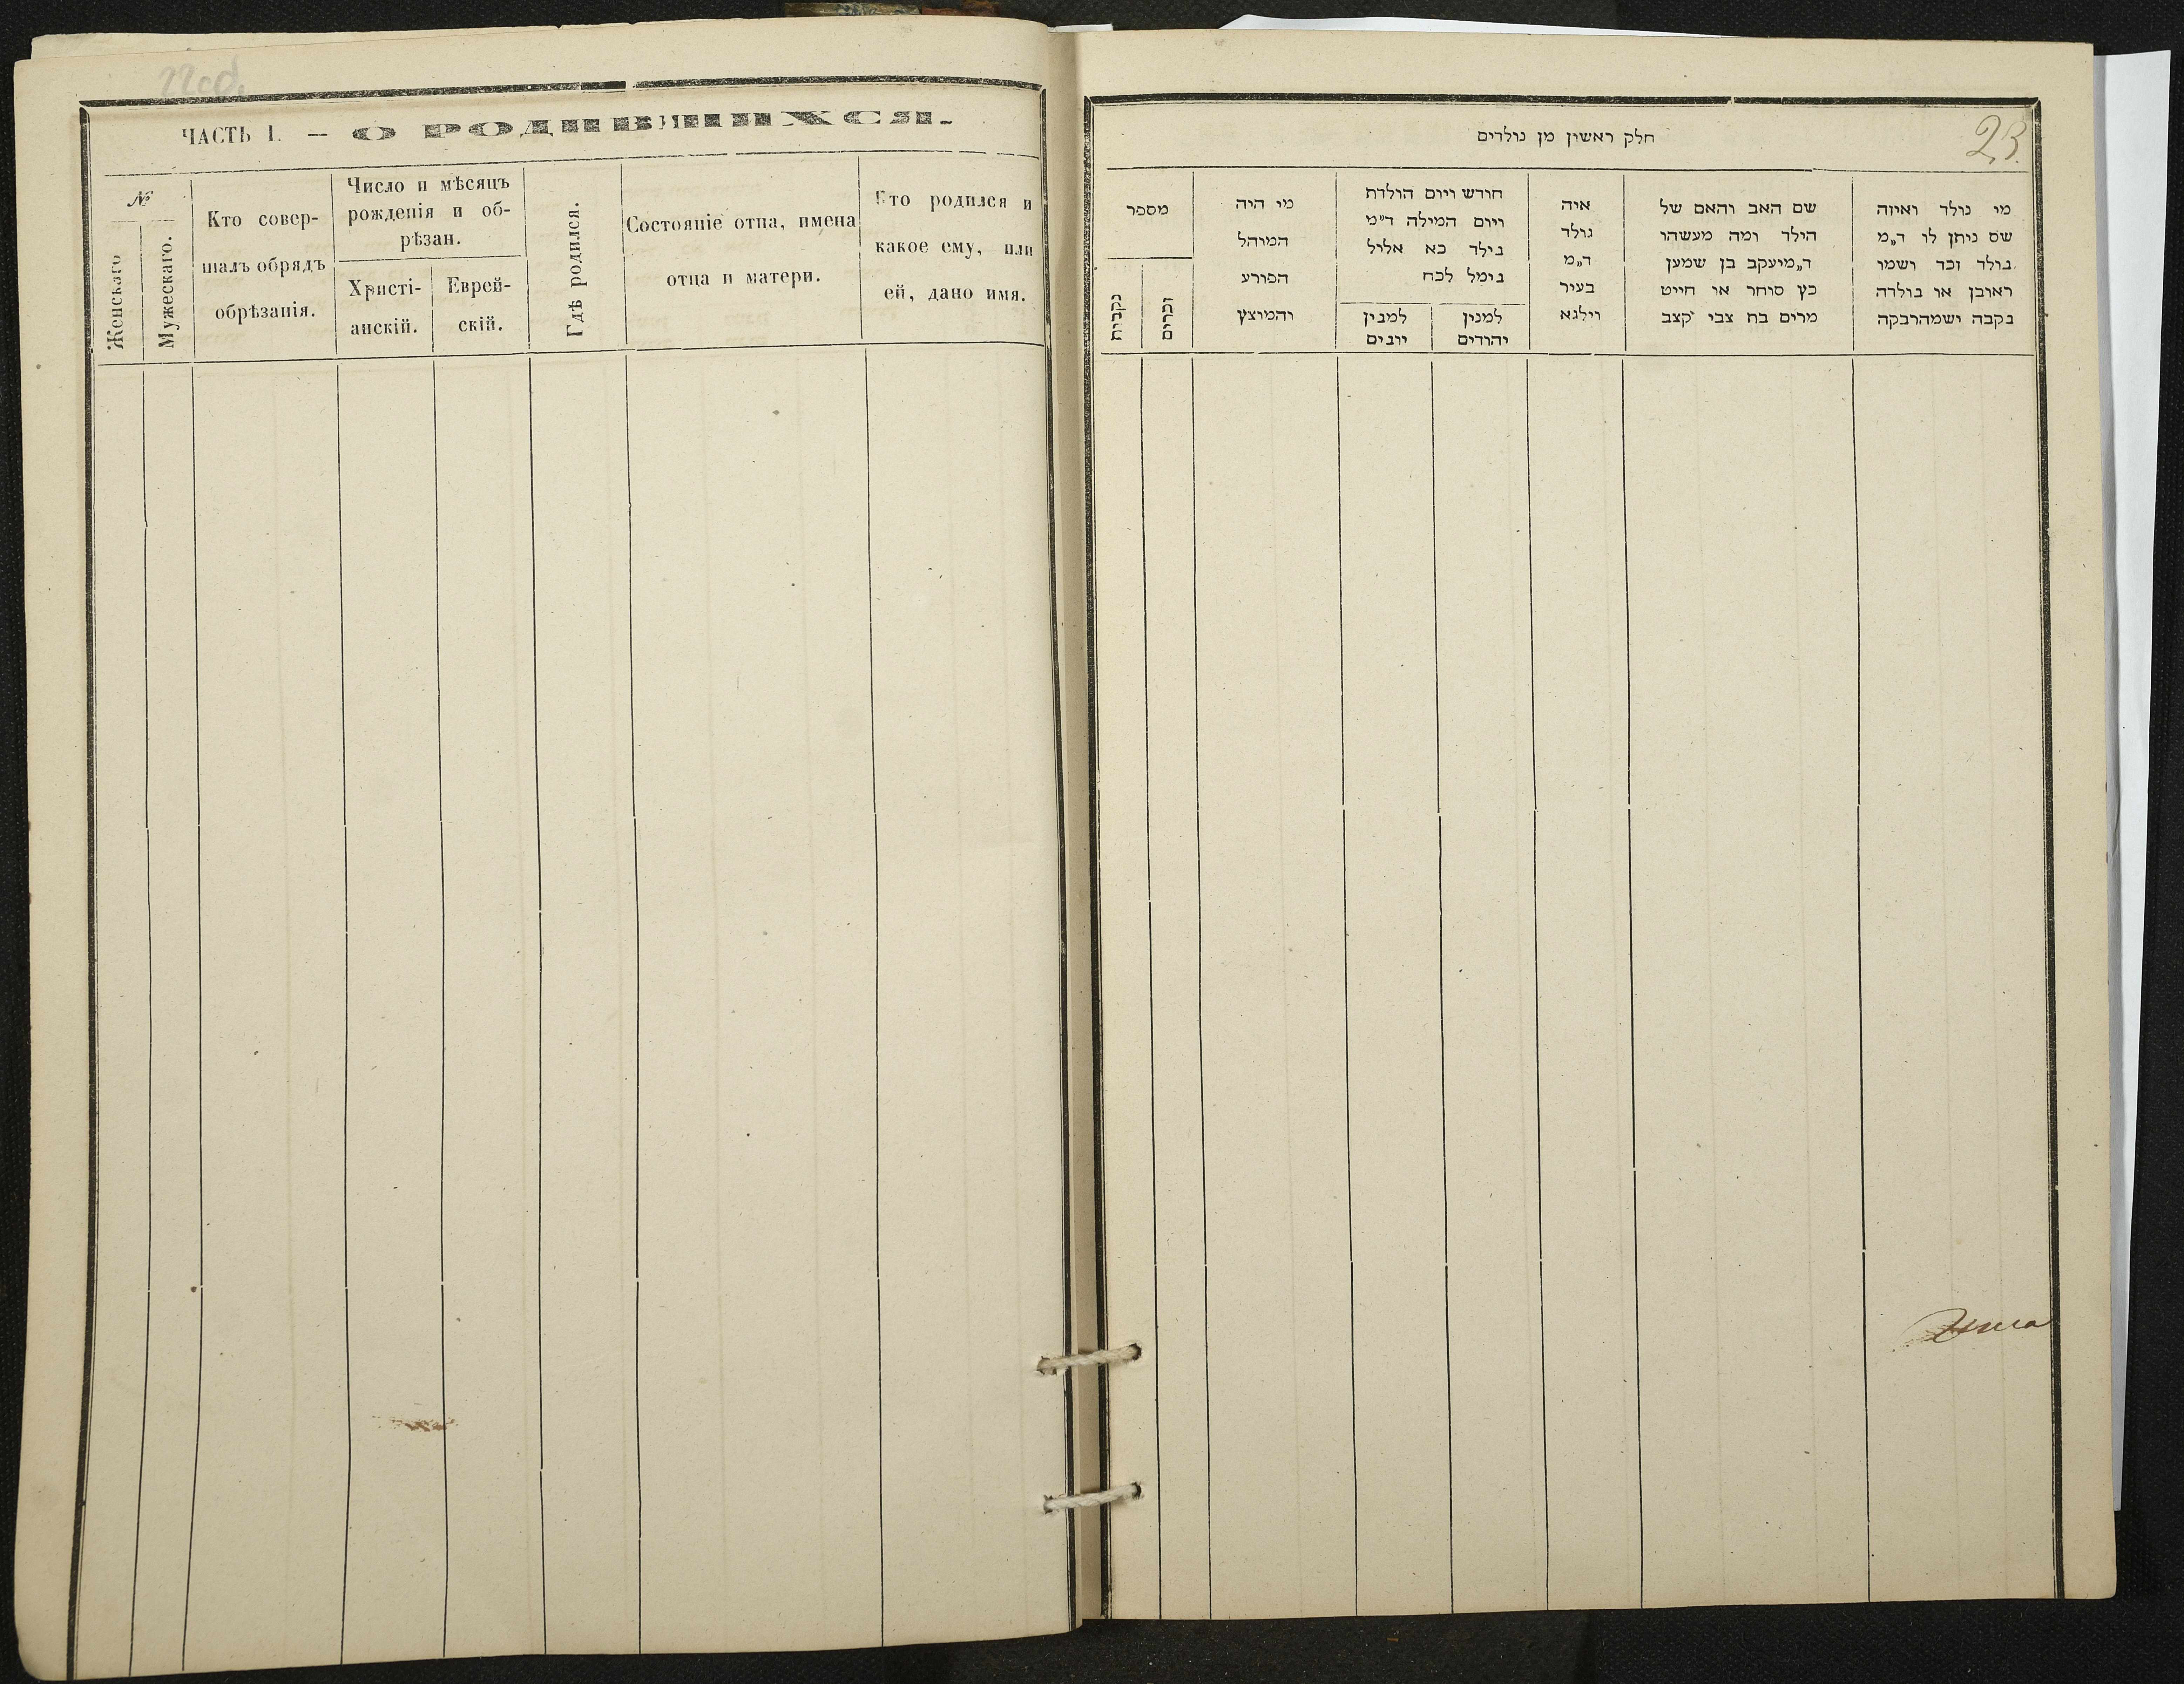 22об.
ЧАСТЬ I. — О РОДИВШИХСЯ.
№
Женскаго
Мужескаго.
Кто совер-
шалъ обрядъ
обрѣзанія.
Число и мѣсяцъ
рожденія и об-
рѣзан.
Христі-
анскій.
Еврей-
скій.
Гдѣ родился.
Состояніе отца, имена
отца и матери.
Кто родился и
какое ему, или
ей, дано имя.
23.
חלק ראשון מן נולדים
מי נולד ואיזה
שם ניתן לו ד„מ
נולד זכר ושמו
ראובן או נולדה
נקבה ושמהרבקה
שם האב והאם של
הילד ומה מעשהו
ד„מיעקב בן שמען
כץ סוחר או חייט
מרים בת צבי קצב
איה
נולד
ד„מ
בעיר
ווילנא
חודש ויום הולדת
ויום המילה ד״מ
נילד כא אליל
נימל לכח
למנין
יהודים
למנין
יונים
מי היה
המוהל
הפורע
והמוצץ
מספר
זכרים
נקבות